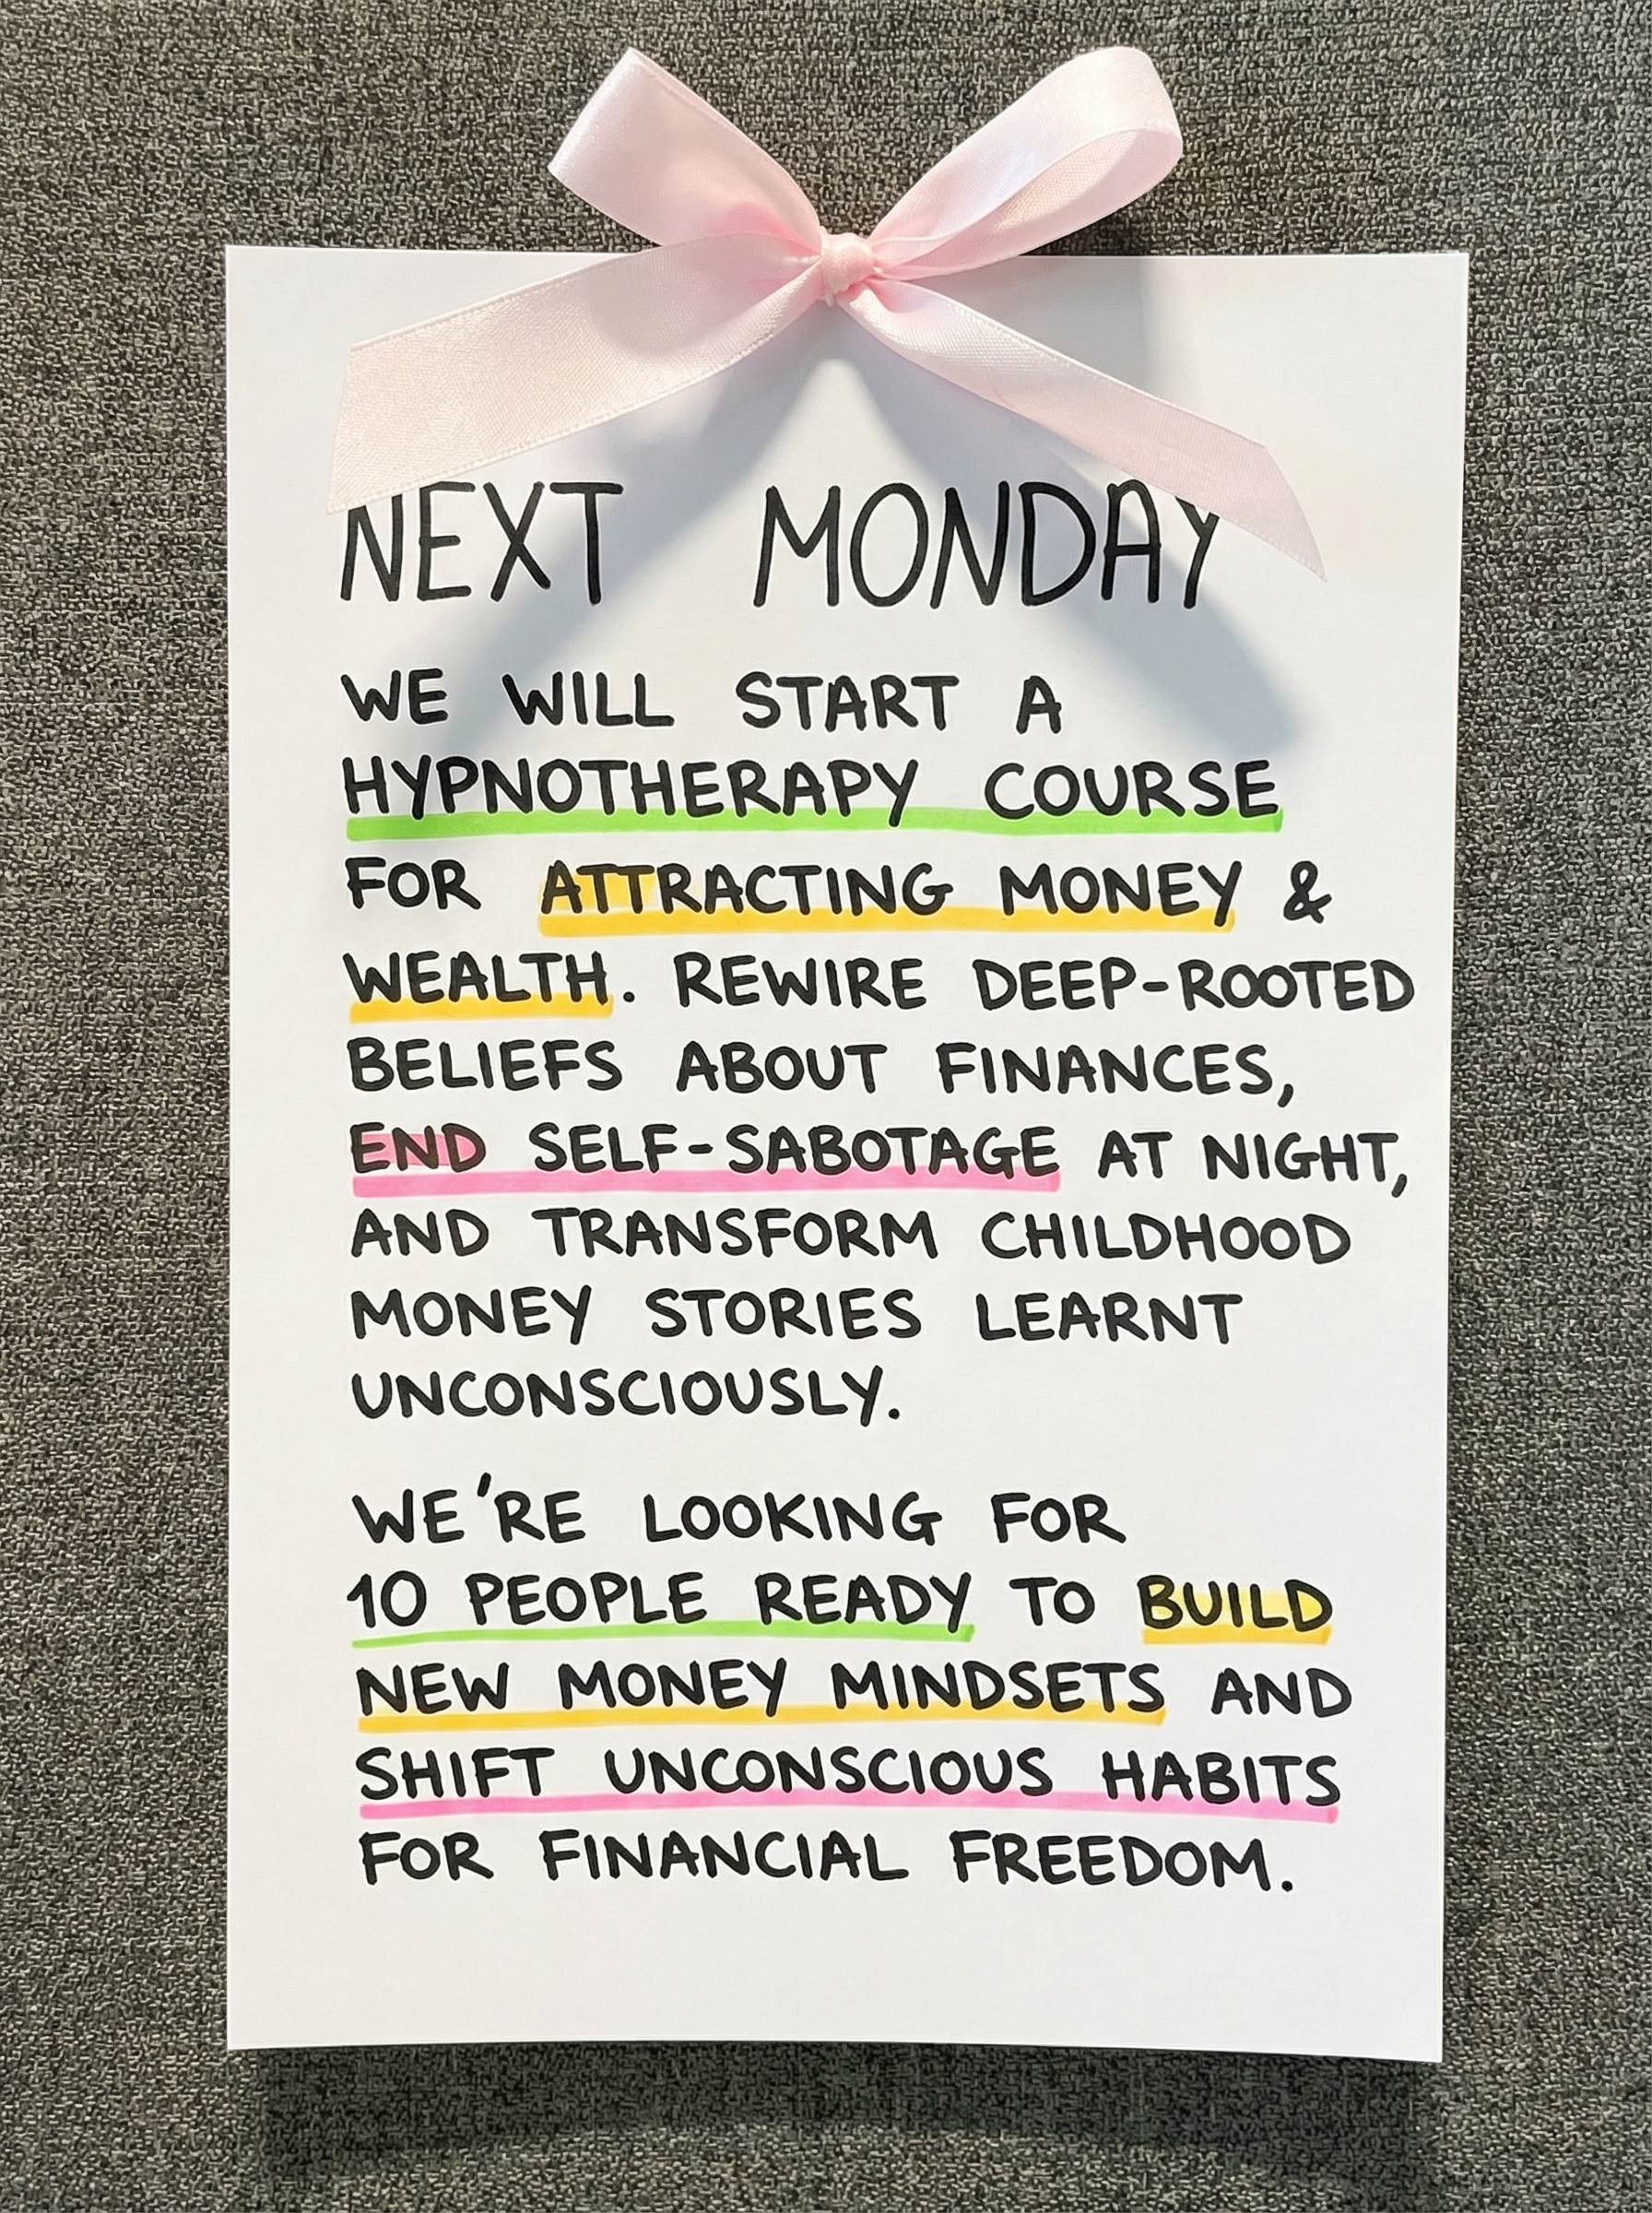 NEXT MONDAY
WE WILL START A
HYPNOTHERAPY COURSE
FOR ATTRACTING MONEY &
WEALTH. REWIRE DEEP-ROOTED
BELIEFS ABOUT FINANCES,
END SELF-SABOTAGE AT NIGHT,
AND TRANSFORM CHILDHOOD
MONEY STORIES LEARNT
UNCONSCIOUSLY.
WE'RE LOOKING FOR
10 PEOPLE READY TO BUILD
NEW MONEY MINDSETS AND
SHIFT UNCONSCIOUS HABITS
FOR FINANCIAL FREEDOM.